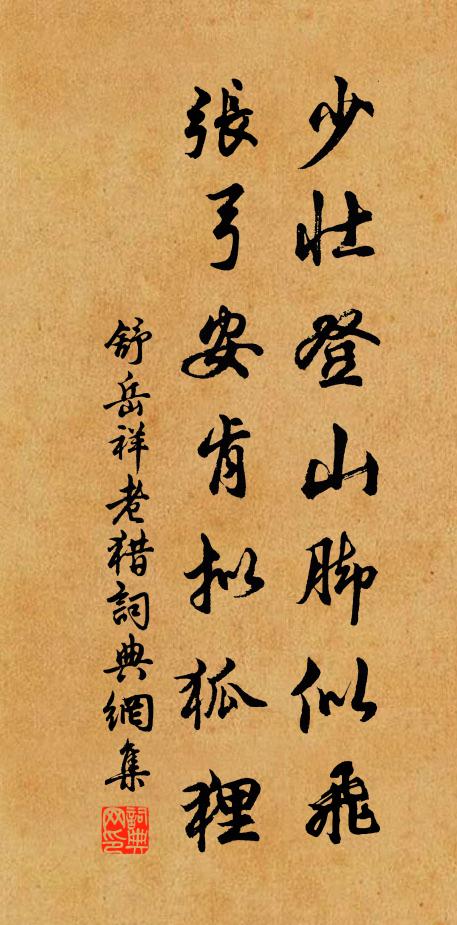 少壯登山脚似飛
張弓安肯拟狐狸
舒岳祥老猎詞典網集
詞典网印